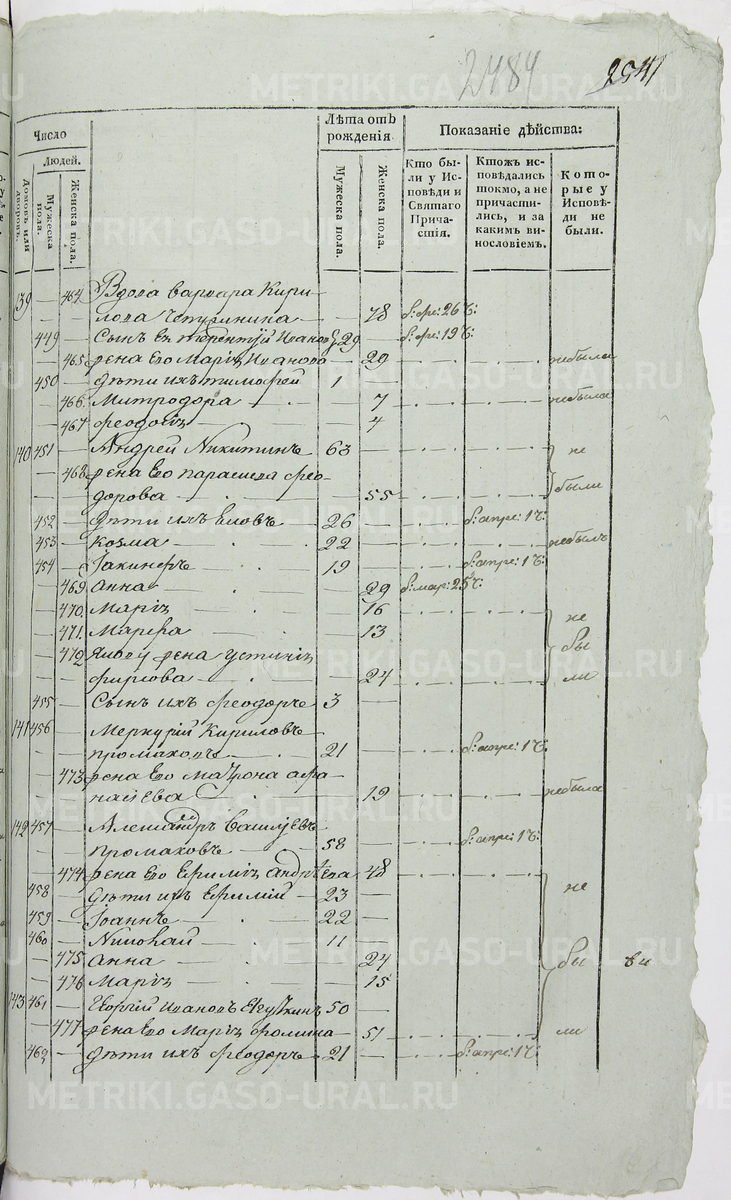 2484
254
Число
Людей.
Домовъ или дворовъ.
Мужеска пола.
Женска пола.
Лѣта отъ рожденія
Мужеска пола.
Женска пола.
Показаніе дѣйства:
Кто были у Исповѣди и Святаго Причастія.
Ктожъ исповѣдались токмо, а не причастились, и за какимъ винословіемъ.
Которые у Исповѣди не были.
139 — 464 Вдова варвара Кири-
лова — — 78 ф: фе: 26 ч:
449 — Сынъ ея терентій Иванов 29 — ф: фе: 19 ч:
— 465 жена Его Марія Иванова — 29 небыла
450 — дѣти ихъ тимофей 1 —
— 466 Митродора — 7 небыла
— 467 феодосія — 4
140 451 — Андрей Никитинъ 63 — не
— 468 жена Его парасцева фео-
дорова — 55 были
452 — дѣти ихъ 26 — апре: 1 ч:
453 — козма 22 — небылъ
454 — Іакинфъ 19 — апре: 1 ч:
— 469 Анна — 29 мар: 25 ч:
— 470 Марія — 16 не
— 471 Марфа — 13 бы
— 472 жена устинія
— 24 ли
455 — Сынъ ихъ феодоръ 3 —
141 456 — Меркурій Кириловъ
промаховъ 21 — апре: 1 ч:
— 473 жена Его Матрона афа-
насіева — 19 небыла
142 457 — Алеѯандръ васильевъ
промаховъ 58 — апре: 1 ч:
— 474 жена Его Андрѣева — 48
458 — дѣти ихъ Еремій 23 — не
459 — Іоаннъ 22 —
460 — Николай 11 —
— 475 Анна — 24 бы
— 476 Марія — 15
143 461 — Георгій Ивановъ 50 —
— 477 жена Его Марія фомина — 51 ли
462 — дѣти ихъ феодоръ 21 — апре: 1 ч:
METRIKI.GASO-URAL.RU